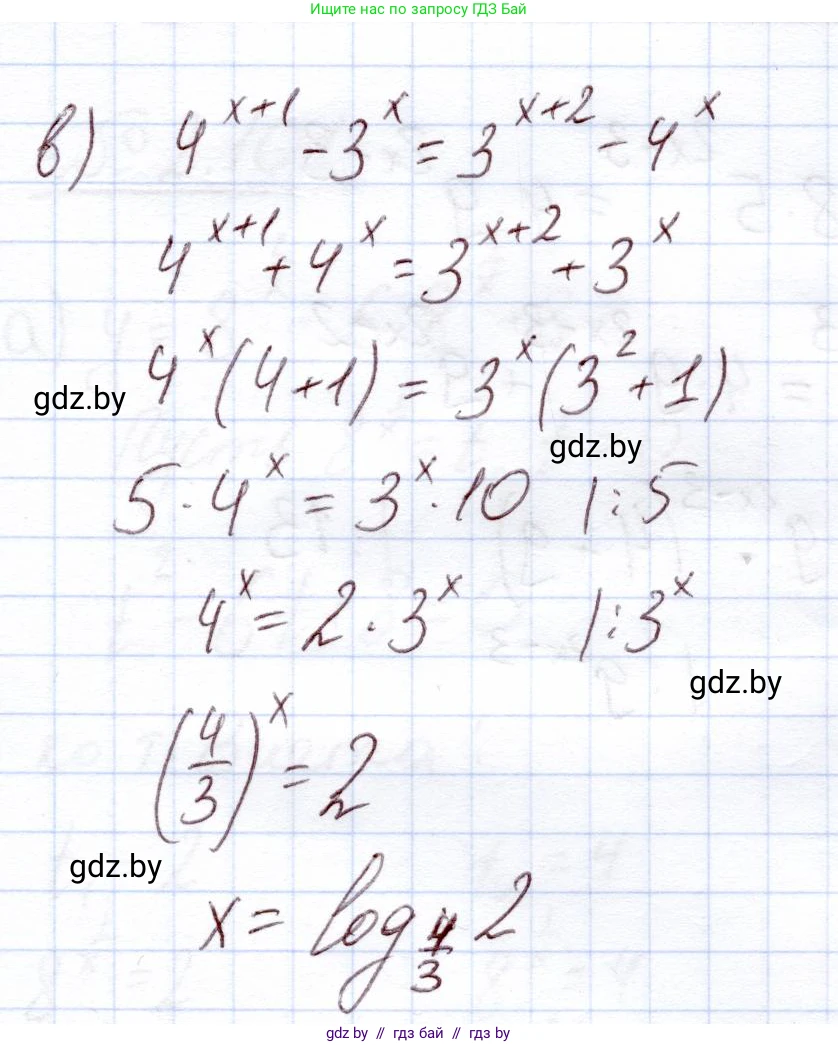 Ищите нас по запросу ГДЗ Бай
в) 4^{x+1} - 3^x = 3^{x+2} - 4^x
4^{x+1} + 4^x = 3^{x+2} + 3^x
4^x (4+1) = 3^x (3^2 + 1)
gdz.by
gdz.by
5 · 4^x = 3^x · 10 | : 5
4^x = 2 · 3^x | : 3^x
gdz.by
(4/3)^x = 2
gdz.by
x = log_{4/3} 2
gdz.by // гдз бай // гдз by